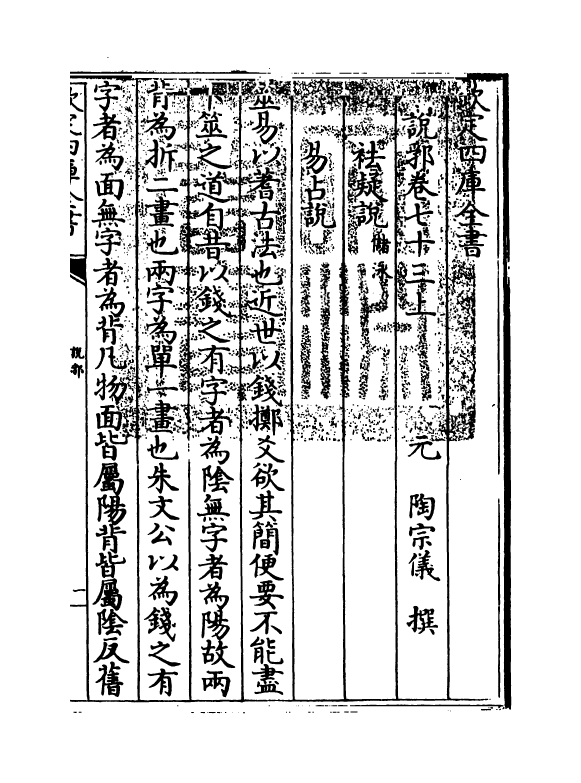 欽定四庫全書
說郛卷七十三上
元 陶宗儀 撰
祛疑說 儲泳
易占說
筮易以蓍古法也近世以錢擲爻欲其簡便要不能盡
卜筮之道自昔以錢之有字者為陰無字者為陽故兩
背為折二畫也兩字為單一畫也朱文公以為錢之有
字者為面無字者為背凡物面皆屬陽背皆屬陰反舊
欽定四庫全書
說郛